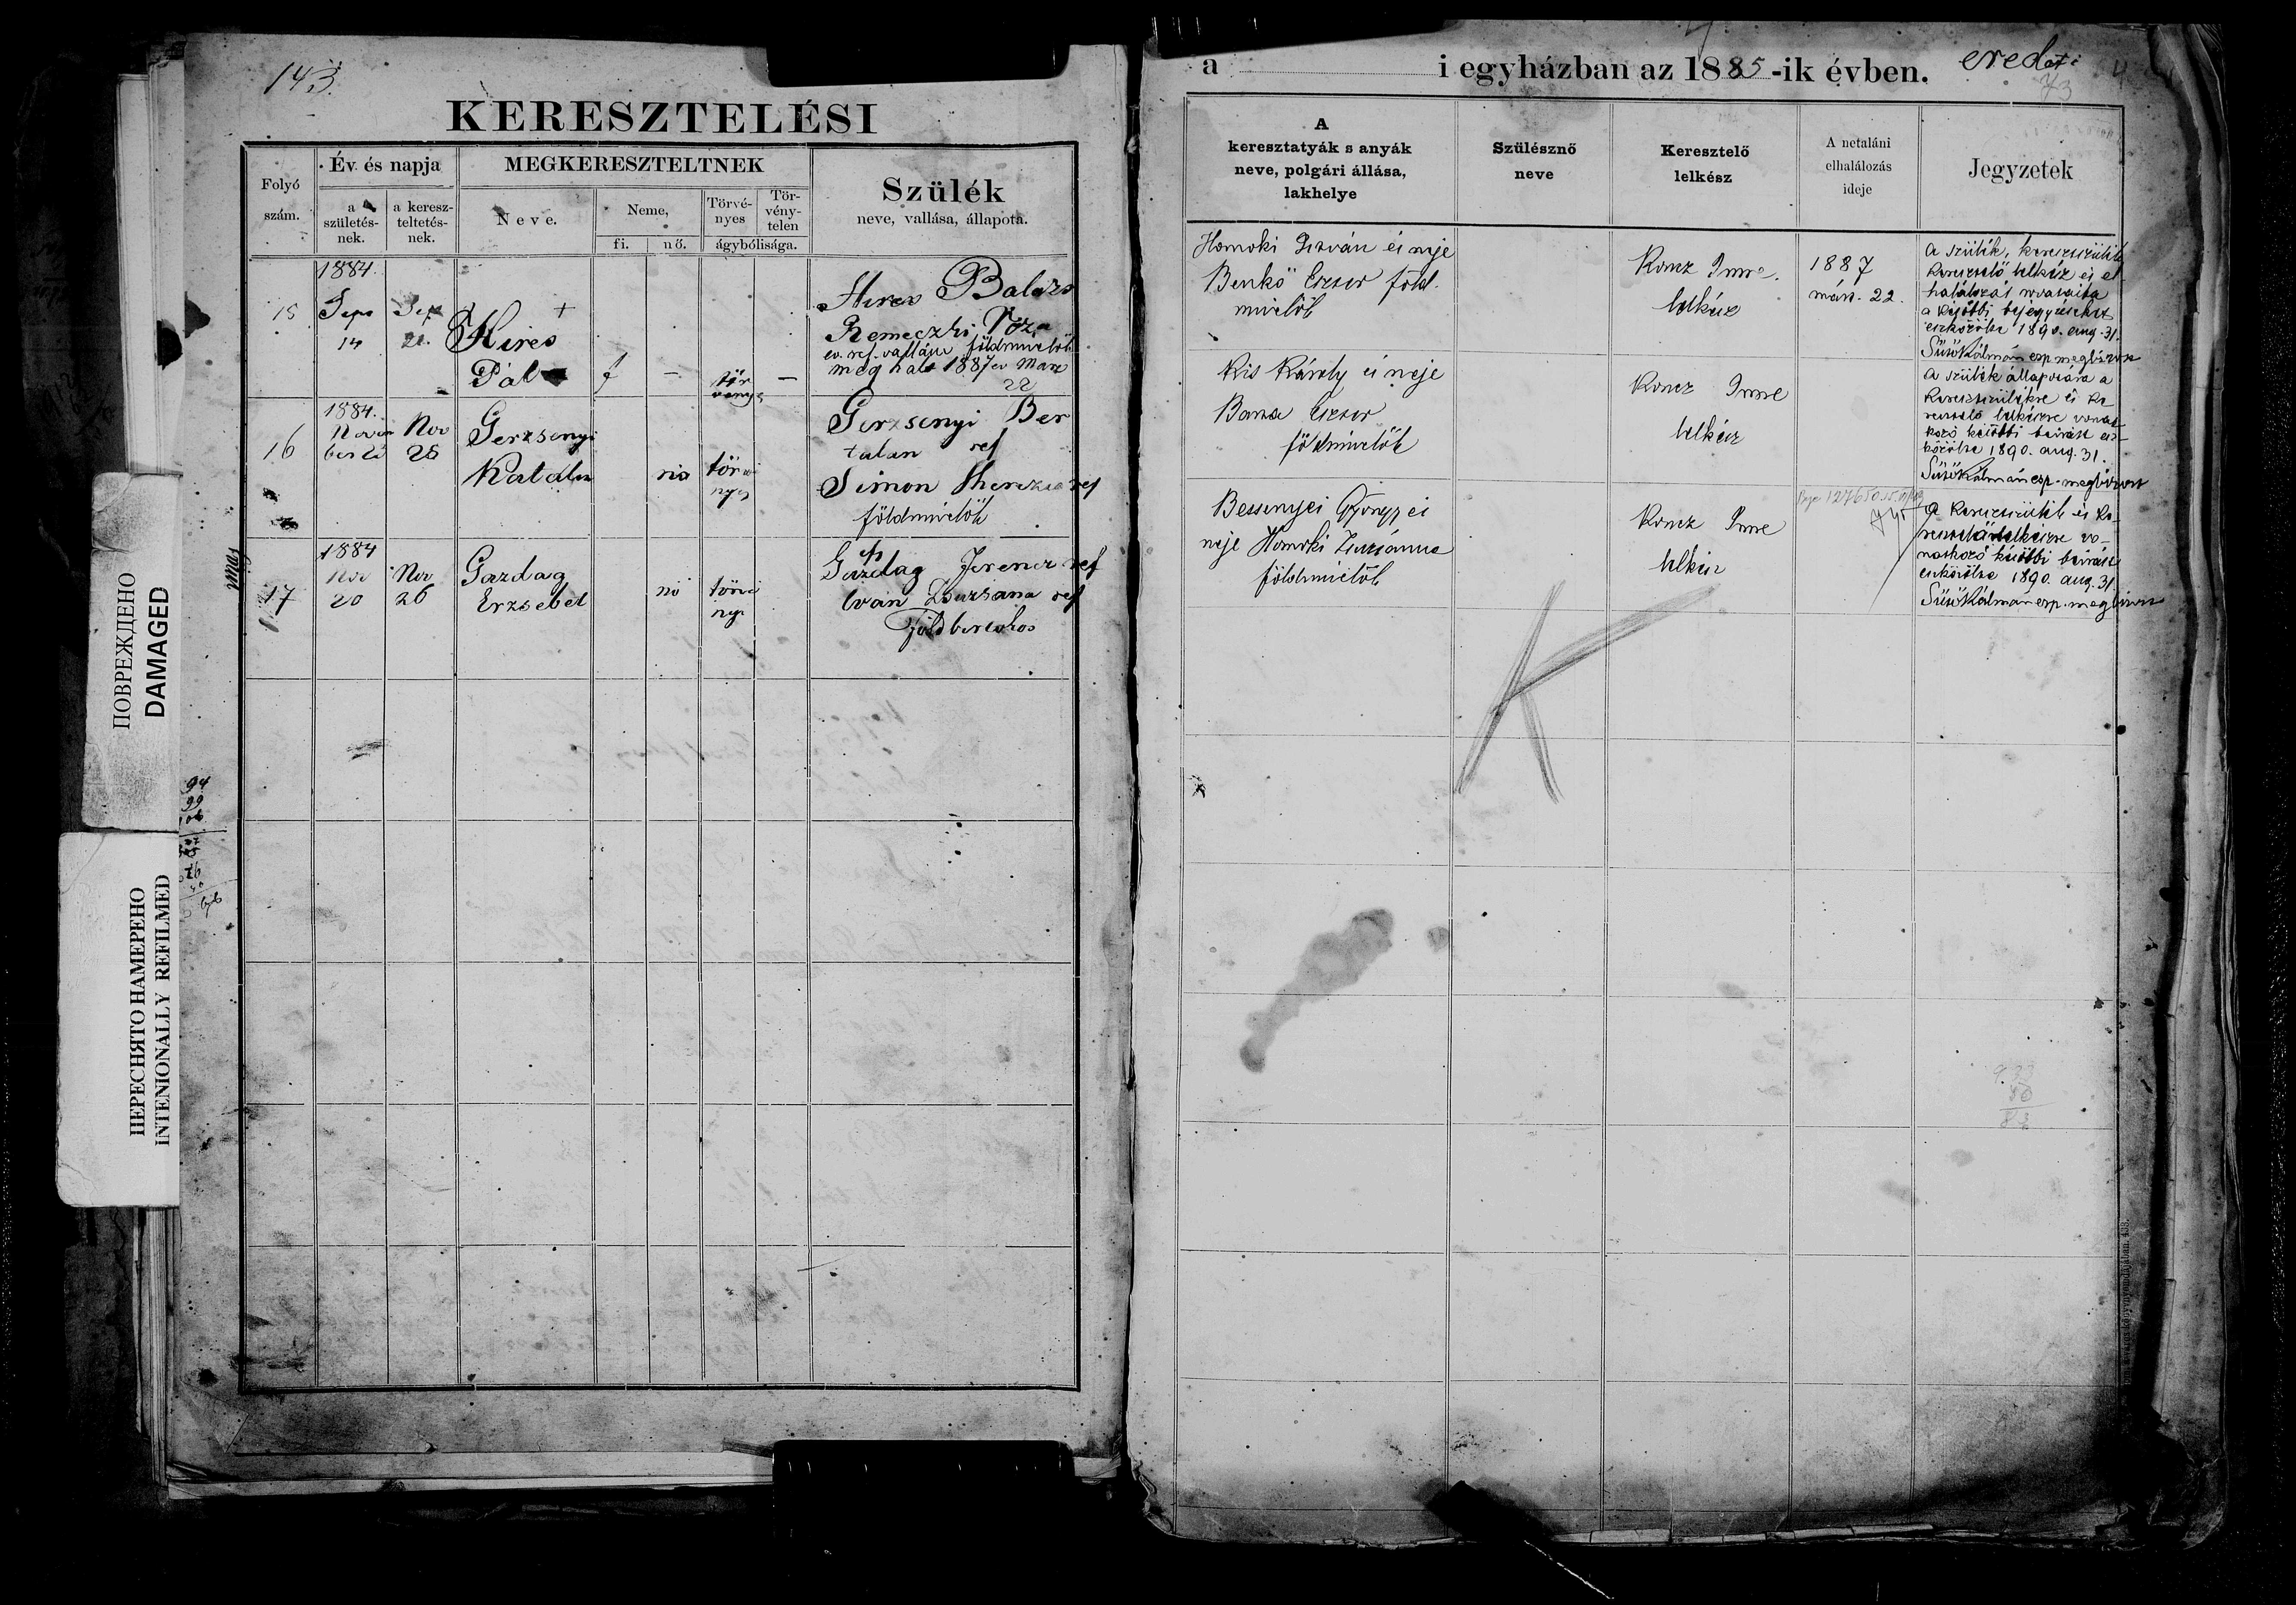 143.
KERESZTELÉSI
Folyó
szám.
Év és napja
a
születés-
nek.
a keresz-
teltetés-
nek.
MEGKERESZTELTNEK
Neve.
Neme,
fi.
nő.
Törvé-
nyes
Tör-
vény-
telen
ágybólisága.
Szülék
neve, vallása, állapota.
15
1884.
Sept
14
Sept
21.
Hires
Pál
f
–
tör
venyes
–
Hires Balázs
Remeczki Róza
ev. ref. vallásu földmivelők
meg halt 1887 ev Marc
22
16
1884.
Novem
ber 23
Nov
28
Gerzsenyi
Katalin
nő
törvé
nyes
Gerzsenyi Ber
talan ref
Simon Therezia ref
földmivelők
17
1884
Nov
20
Nov
26
Gazdag
Erzsebet
nő
törvé
nyes
Gazdag Ferencz ref
Iván Zsuzsana ref
Földbirtokos
94
99
106
ПОВРЕЖДЕНО
DAMAGED
ПЕРЕСНЯТО НАМЕРЕНО
INTENIONALLY REFILMED
a i egyházban az 1885-ik évben.
eredeti
73
A
keresztatyák s anyák
neve, polgári állása,
lakhelye
Szülésznő
neve
Keresztelő
lelkész
A netaláni
elhalálozás
ideje
Jegyzetek
Homoki István és neje
Benkő Eszter föld.
mivelők
Koncz Imre.
lelkész
1887
márt. 22.
a szülék, keresztszülék
keresztelő lelkész és el-
halálozás rovataiba
a későbbi bejegyzéseket
eszközölte 1890. aug. 31.
Sütő Kálmán esp. megbizott
Kis Károly és neje
Barta Eszter
földmivelők
Koncz Imre
lelkész
a szülék állapotára a
keresztszülékre és ke-
resztelő lelkészre vonat
kozó későbbi beirást esz-
közölte 1890. aug. 31.
Sütő Kálmán esp. megbizott
Bessenyei György és
neje Homoki Zsuzsánna
földmivelők
Koncz Imre
lelkész
a keresztszülék és ke-
resztelő lelkészre vo-
natkozó későbbi beirást
eszközölte 1890. aug. 31.
Sütő Kálmán esp. megbizott